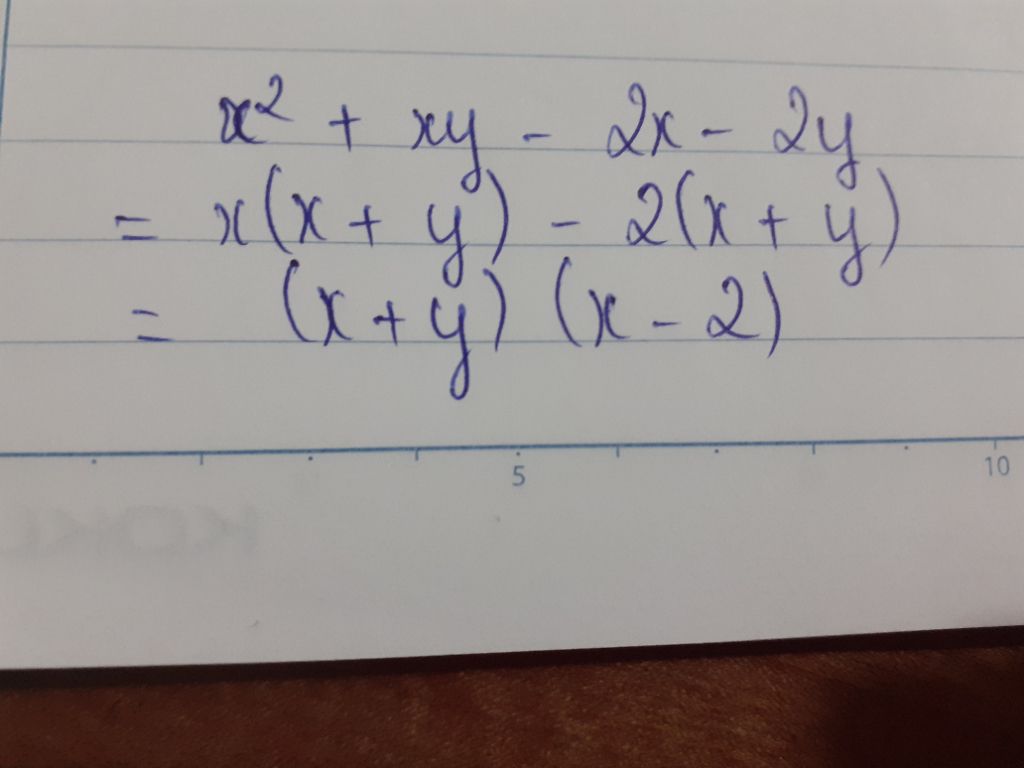 x² + xy - 2x - 2y
= x(x + y) - 2(x + y)
= (x + y) (x - 2)
5 10